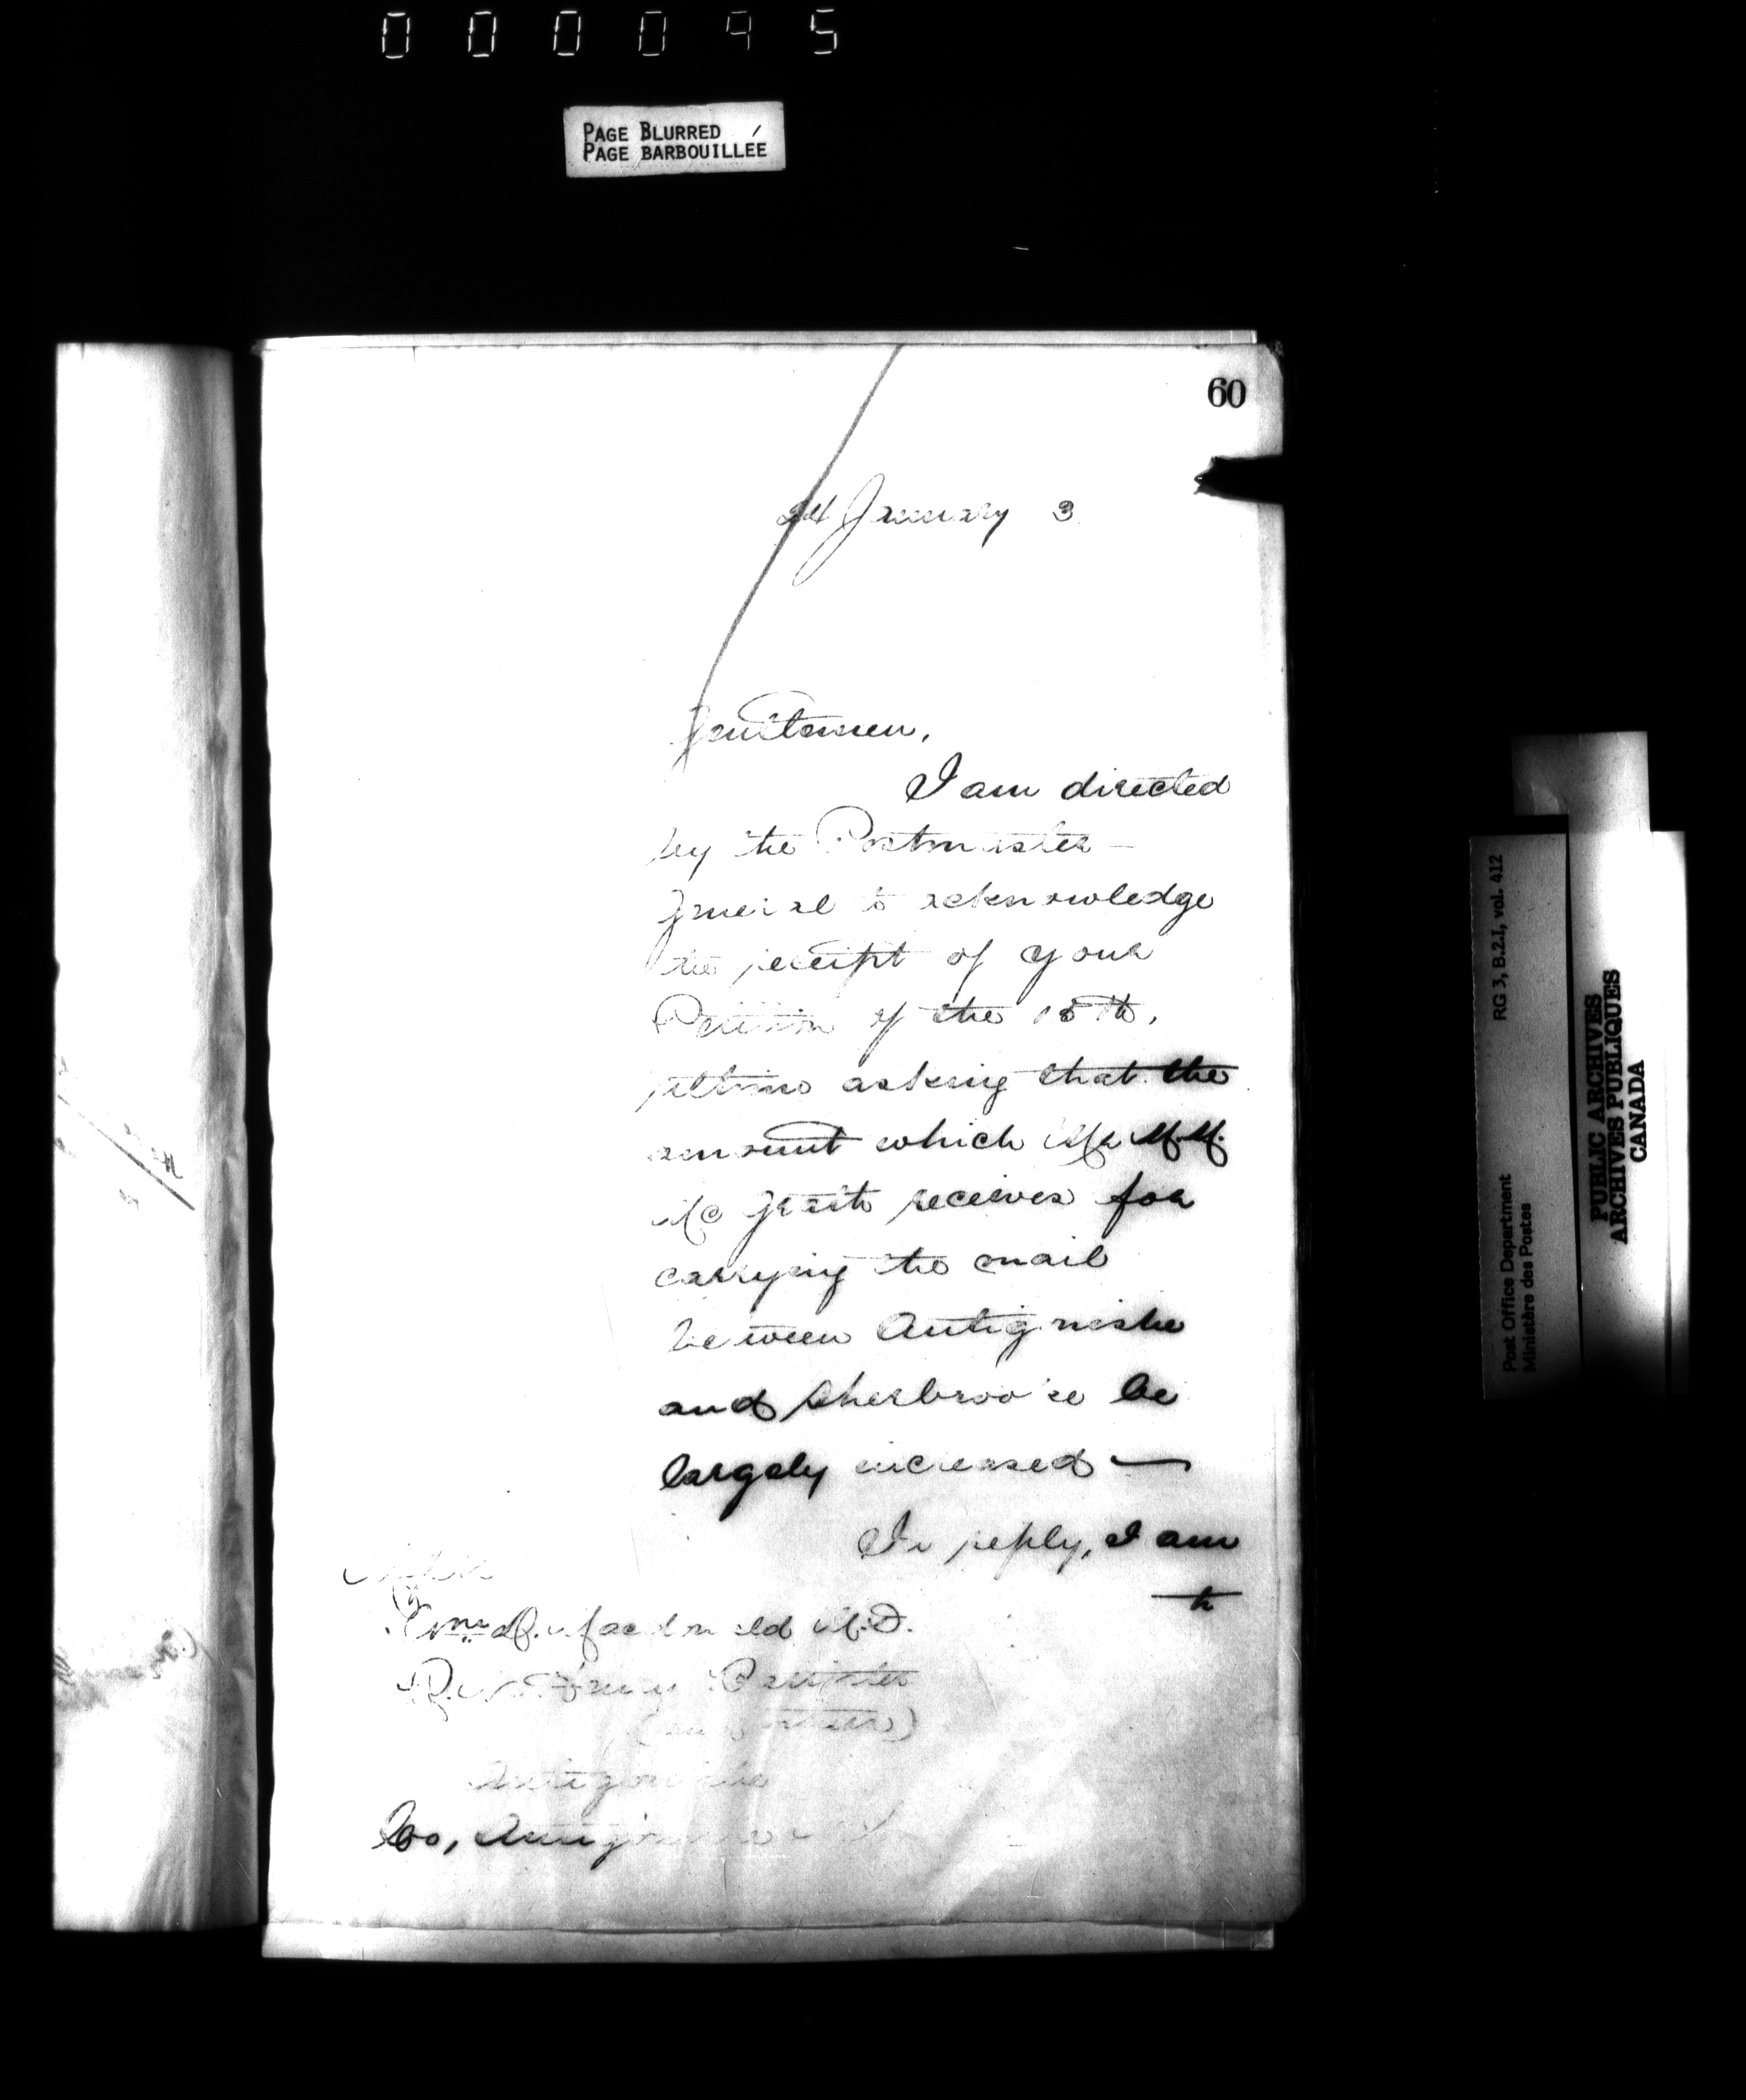 000095
PAGE BLURRED
PAGE BARBOUILLÉE
60
24 January 3
Gentlemen,
I am directed
by the Postmaster
General to acknowledge
the receipt of your
Petition of the 15th,
ultimo asking that the
amount which Mr M. M.
McGrath receives for
carrying the mail
between Antigonishe
and Sherbrooke be
largely increased —
In reply, I am
to
Wm D. Macdonald M.D.
Barrister
(and others)
Antigonishe
Co, Antigonishe
RG 3, B.2.1, vol. 412
Post Office Department
Ministère des Postes
PUBLIC ARCHIVES
ARCHIVES PUBLIQUES
CANADA